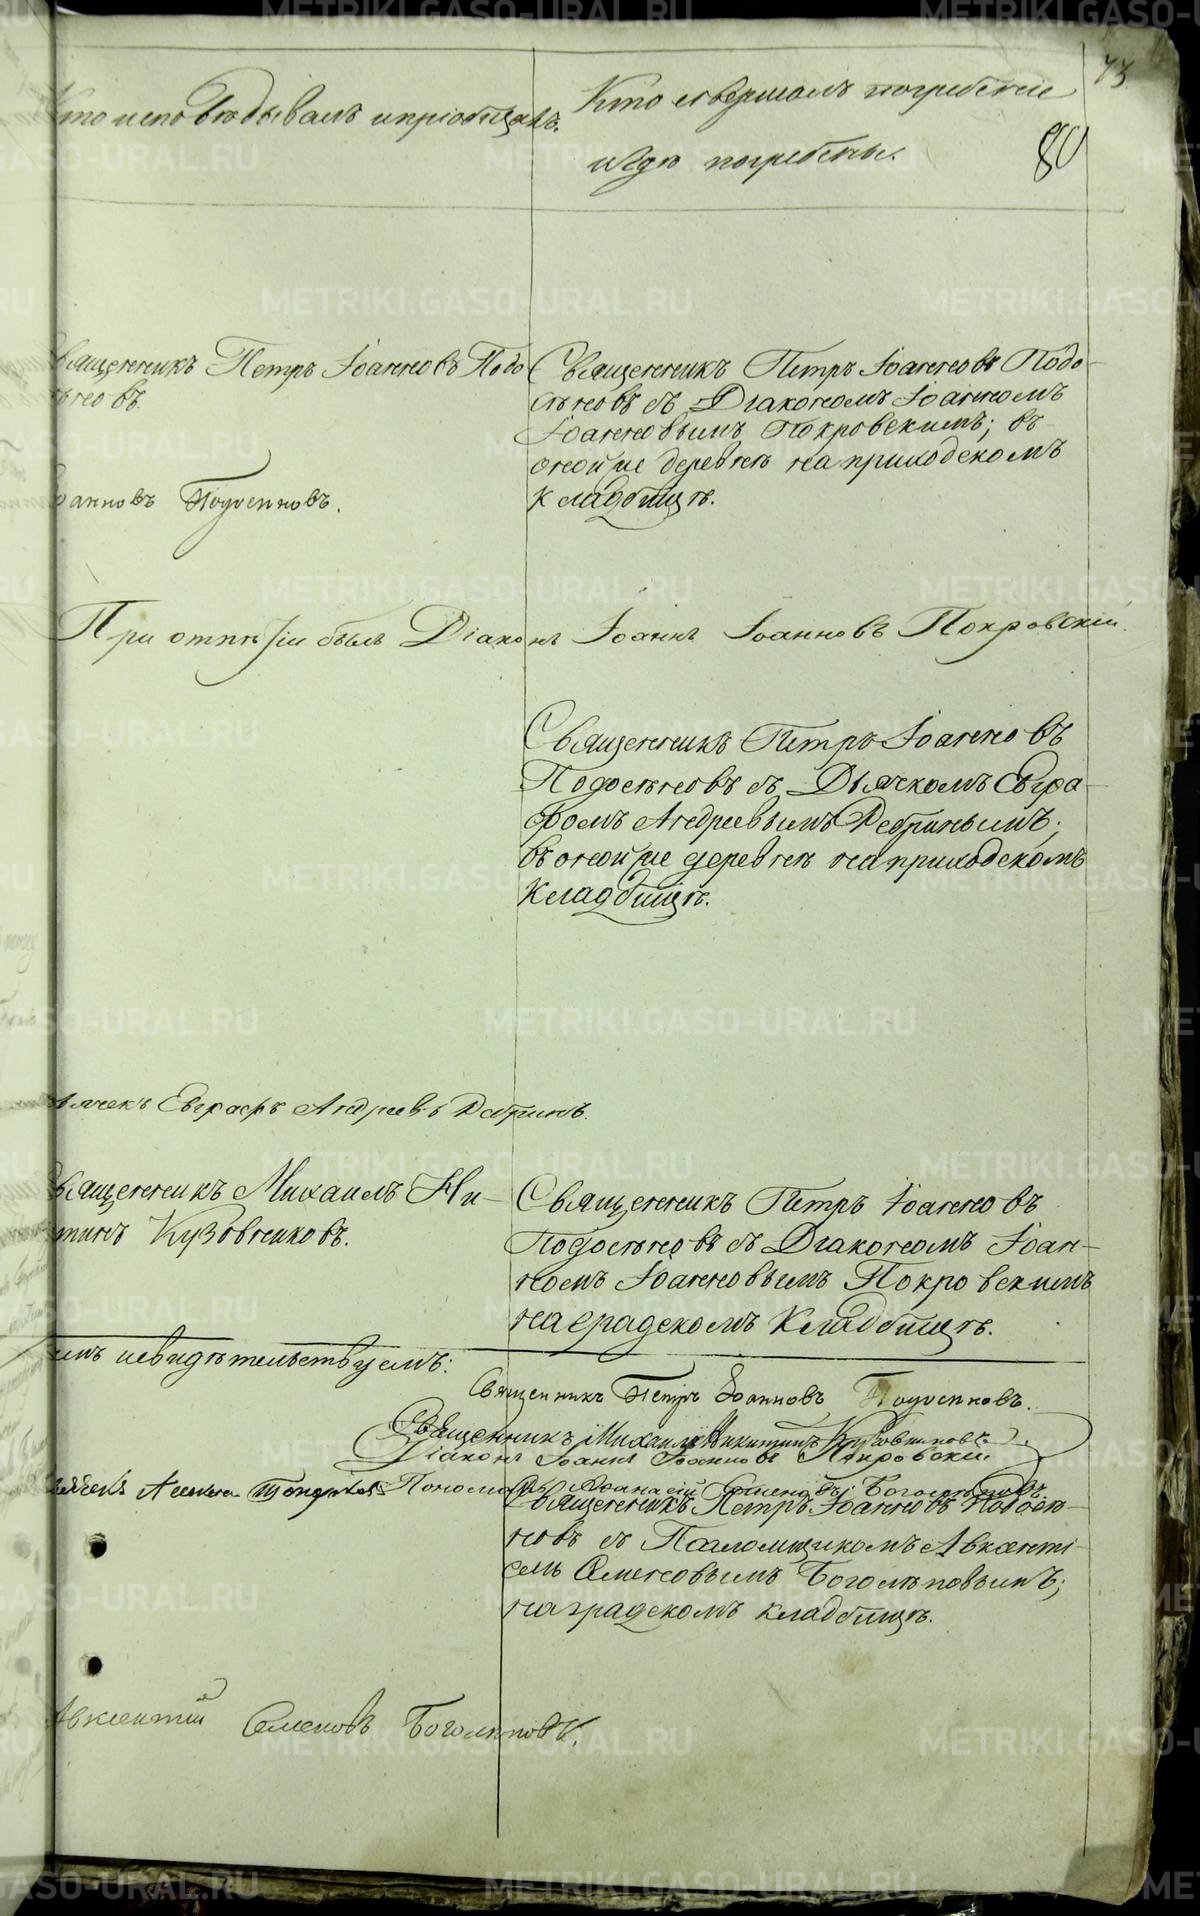 73
Кто исповѣдывалъ и пріобщалъ.
Кто совершалъ погребеніе
и гдѣ погребены.
80
Священникъ Петръ Іоанновъ Подо
сѣновъ.
Священникъ Петръ Іоанновъ Подо-
сѣновъ съ Діакономъ Іоанномъ
Іоанновымъ Покровскимъ; въ
оной же деревнѣ на приходскомъ
кладбищѣ.
оанновъ Подосѣновъ.
При отпѣтіи былъ Діаконъ Іоаннъ Іоанновъ Покровскій.
Священникъ Петръ Іоанновъ
Подосѣновъ съ Дьячкомъ Евгра-
фомъ Андреевымъ Дебринымъ;
въ оной же деревнѣ на приходскомъ
кладбищѣ.
ьячекъ Евграфъ Андреевъ Дебринъ.
вященникъ Михаилъ Ни-
тинъ Кузовниковъ.
Священникъ Петръ Іоанновъ
Подосѣновъ съ Діакономъ Іоан-
номъ Іоанновымъ Покровскимъ
на градскомъ кладбищѣ.
емъ и свидѣтельствуемъ:
Священникъ Петръ Іоанновъ Подосѣновъ.
Священникъ Михаилъ Никитинъ Кузовниковъ.
Діаконъ Іоаннъ Іоанновъ Покровскій
Пономарь Афанасій Семеновъ Боголѣповъ.
Священникъ Петръ Іоанновъ Подосѣ-
новъ съ Псаломщикомъ Авксенті-
емъ Семеновымъ Боголѣповымъ;
на градскомъ кладбищѣ.
Авксентій Семеновъ Боголѣповъ.
METRIKI.GASO-URAL.RU